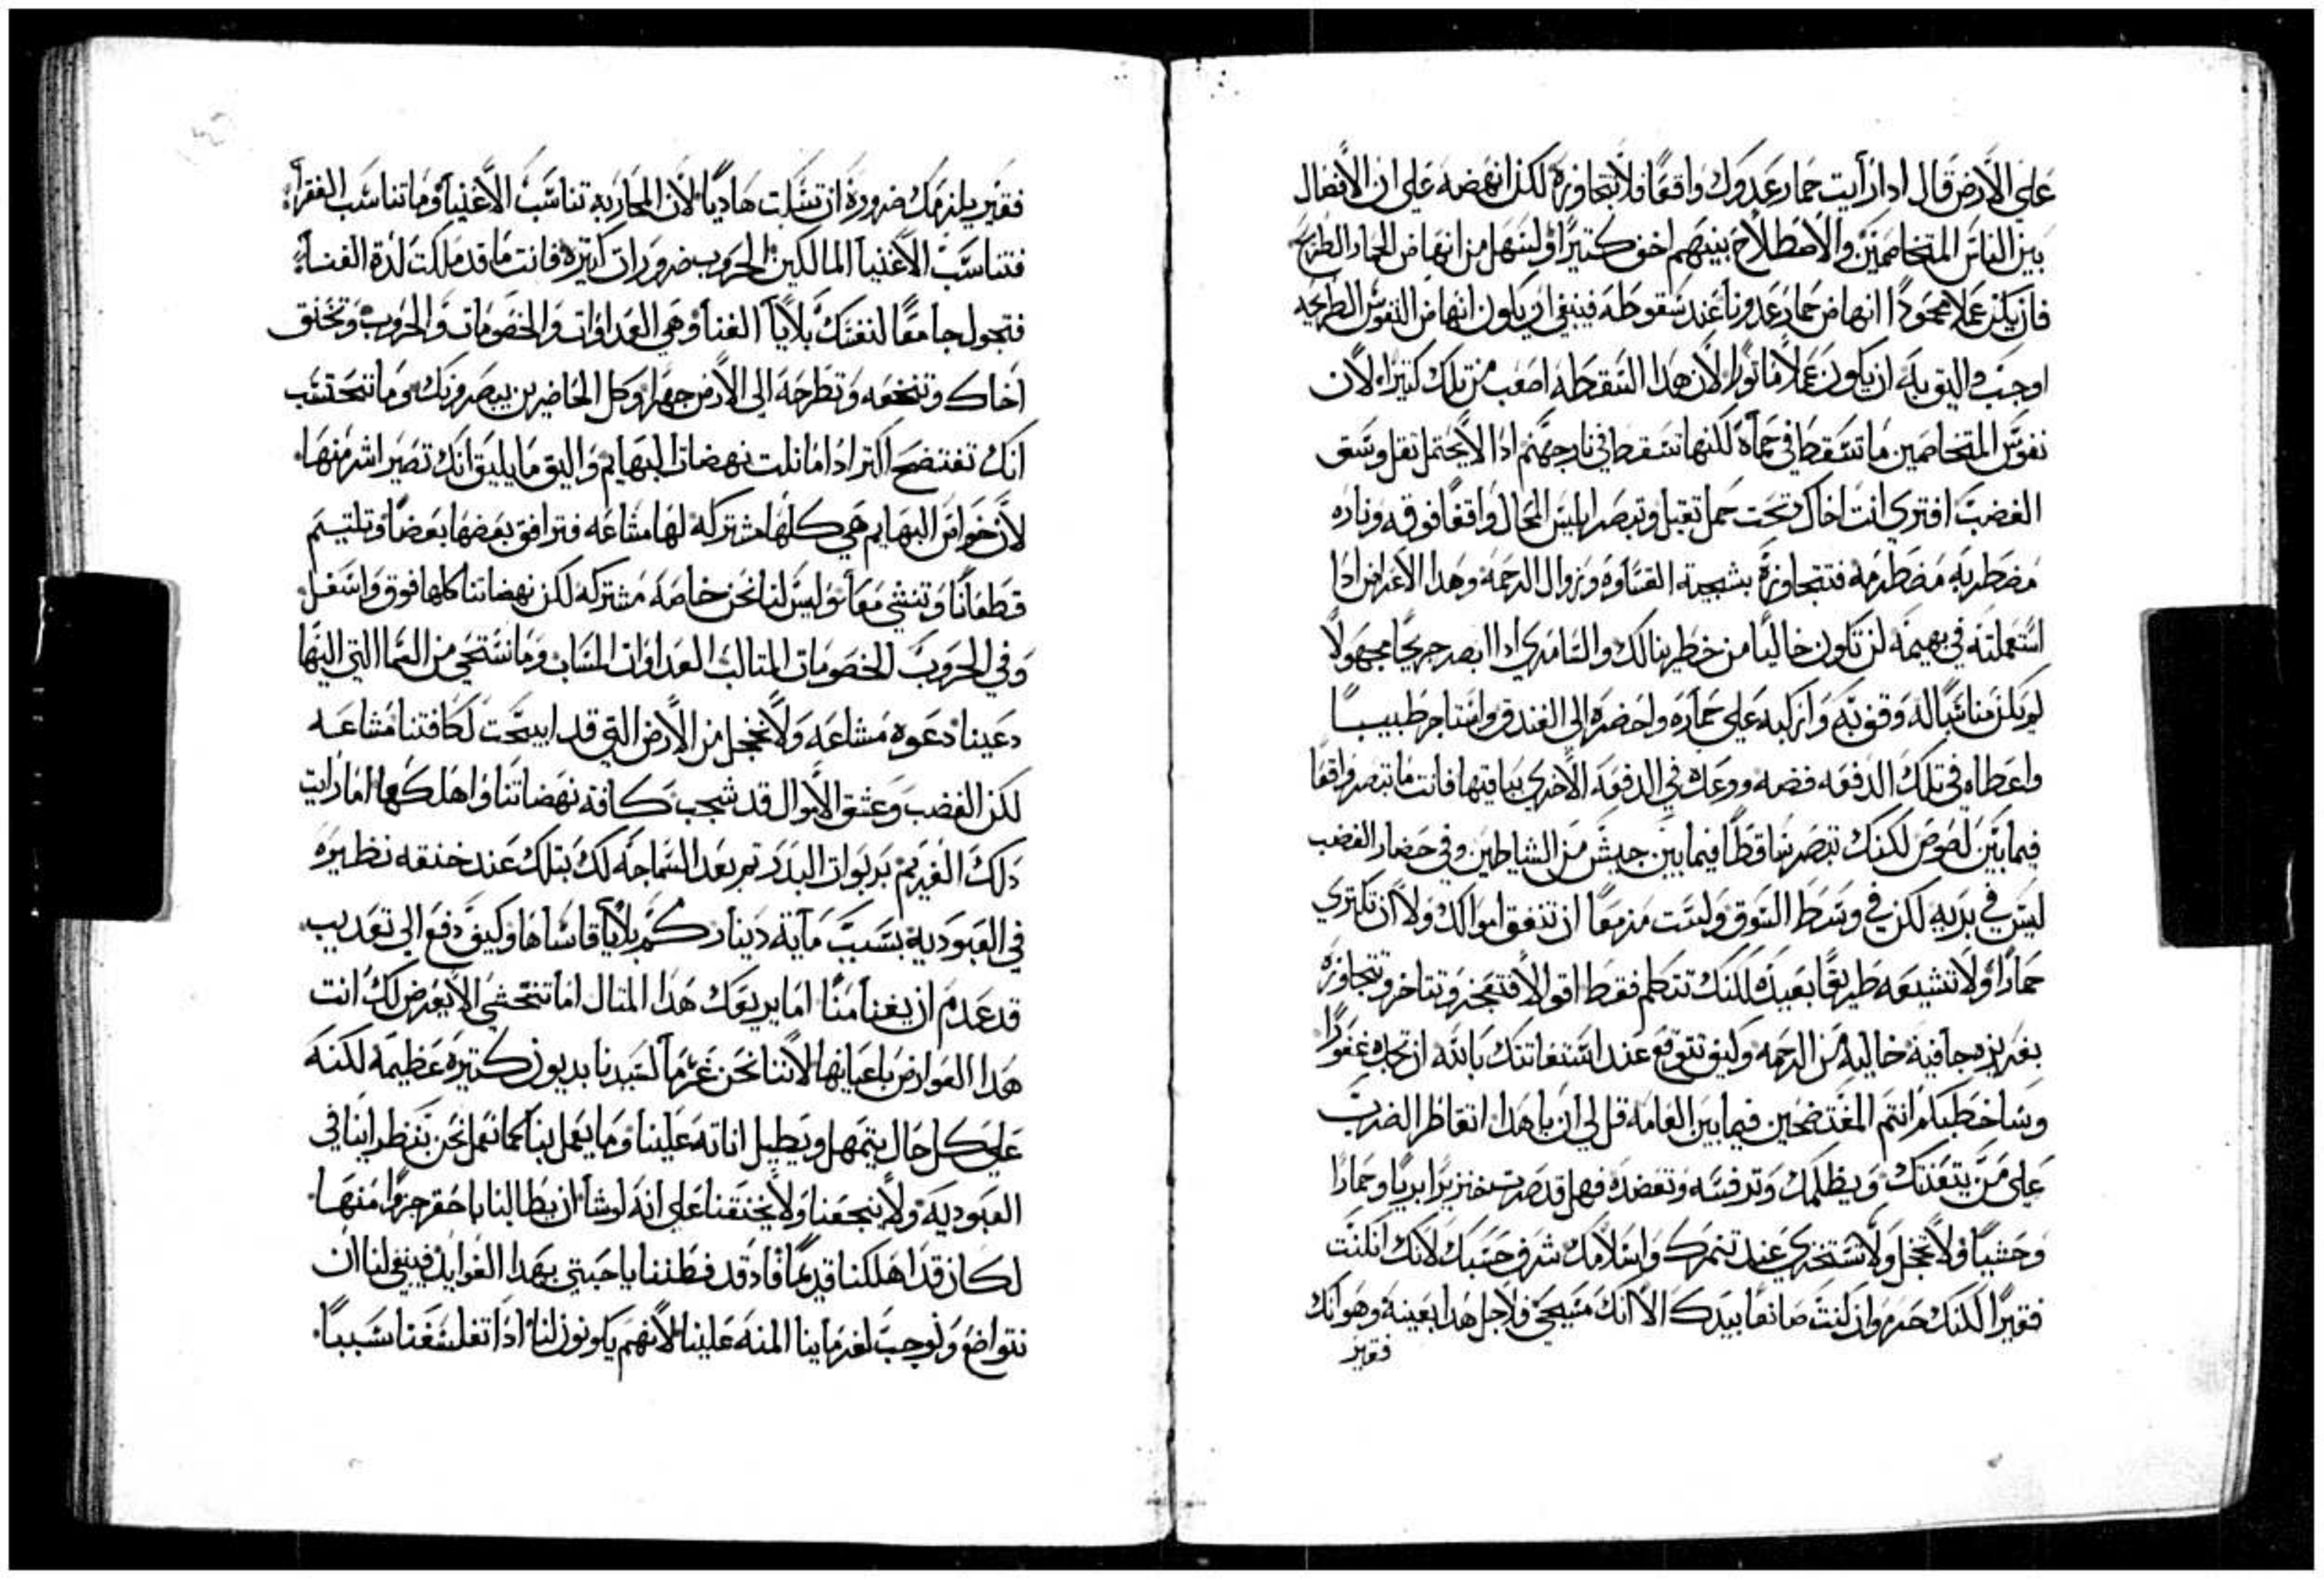 على الارض قال ادا رأيت حمار عدوك واقعًا فلا تتجاوزه لكن انهضه على ان الأفعال
بين الناس المتخاصمين والاصطلاح بينهم اخف كتيرًا واسهل من انهاض الحمار الطريح
فان يكن عملا محمودًا انهاض حمار عدونا عند سقوطه فينبغي ان يكون انهاض النفوس الطريحه
اوجب واليق به ان يكون عملًا ماتورًا لان هدا السقطه اصعب من تلك كتيرًا لان
نفوس المتخاصمين ما تسقط في حمأه لكنها تسقط في نار جهنم ادا لا يحتمل تقل وسق
الغضب افترى انت اخاك تحت حمل تقيل وتبصر ابليس المحال واقعًا فوقه وناره
مضطربه مضطرمه فتتجاوزه بشجية القساوه وزوال الرحمه وهدا الاعراض ادا
استعملته في بهيمه لن تكون خاليًا من خطر ينالك والسامري ادا ابصر جريحًا مجهولًا
لم يكن مناسبًا له وقف به واركبه على حماره واحضره الى الفندق واستاجر طبيبًا
واعطاه في تلك الدفعه فضه ووعده في الدفعه الاخرى بباقيها فانت ما تبصر واقعًا
فيما بين لصوص لكنك تبصر ساقطًا فيما بين جيش من الشياطين وفي حصار الغضب
ليس في بريه لكن في وسط السوق ولست مزمعًا ان تنفق اموالك ولا ان تكتري
حمارًا ولا تشيعه طريقًا بعيدًا لكنك تتكلم فقط اقوالا فتضجر وتتاخر وتتجاوزه
بغريزه جافيه خاليه من الرحمه وكيف تتوقع عند استغاتتك بالله ان تجده غفورًا
وساخطبكم انتم المفتضحين فيما بين العامه قل لي ان يا هدا اتعاظر الضرب
على من يتعنتك ويظلمك وترفسه وتعضده فهل قد صرت خنزيرًا بريًا وحمارًا
وحشيًا ولا تخجل ولا تستخزي عند تنمرك واسلامك شرف حسبك لانك ان كنت
فقيرًا لكنك حر وان كنت صانعًا بيدك الا انك مسيحي فلاجل هدا بعينه وهو انك
فقير
فقير يلزمك ضرورة ان تشكلت هاديًا لان المحاربه تناسب الأغنيا وما تناسب الفقرا
فتناسب الاغنيا المالكين الحروب ضرورات كتيره فانت ما قد ملكت لدة الغنا
فتجول جامعًا لنفسك بلايا الغنا وهي العداوات والخصومات والحروب وتخنق
اخاك وتنخعه وتطرحه الى الارض جهرًا وكل الحاضرين يبصرونك وما تحتسب
انك تفتضح اكتر ادا ما نلت نهضات البهايم واليق ما يليق انك تصير اشر منها
لان خواص البهايم هي كلها مشتركه لها مشاعه فترافق بعضها بعضًا وتلتيم
قطعانًا وتنشي معًا وليس لنا نحن خاصه مشتركه لكن نهضاتنا كلها فوق واسفل
وفي الحروب الخصومات المتالب العداوات المساب وما نستحي من السما التي اليها
دعينا دعوة مشاعه ولا نخجل من الأرض التي قد ابيحت لكافتنا مشاعه
لكن الغضب وعشق الاموال قد شجب كافة نهضاتنا واهلكها اما رايت
دلك الغريم بربوات البدر تم بعد السماحه لك بتلك عند خنقه نظيره
في العبوديه بسبب مآية دينار كم بلايا قاساها وكيف دفع الى تعديب
قد عدم ان يغنا منًا اما يريعك هدا المتال اما تتخشى الا يعرض لك انت
هدا العوارض باعيانها لاننا نحن غرمآ لسيدنا بديون كتيره عظيمه لكنه
على كل حال يتمهل ويطيل اناته علينا وما يعمل بنا كما نعمل نحن بنظراينا في
العبوديه ولا ينخعنا ولا يخنقنا على انه لو شا ان يطالبنا باحقر جزوا منها
لكان قد اهلكنا قديمًا فاد قد فطننا يا احبتي بهدا الفوايد فينبغي لنا ان
نتواضع ونوجب لغرماينا المنه علينا لانهم يكونون لنا ادا تفلسفنا سببًا